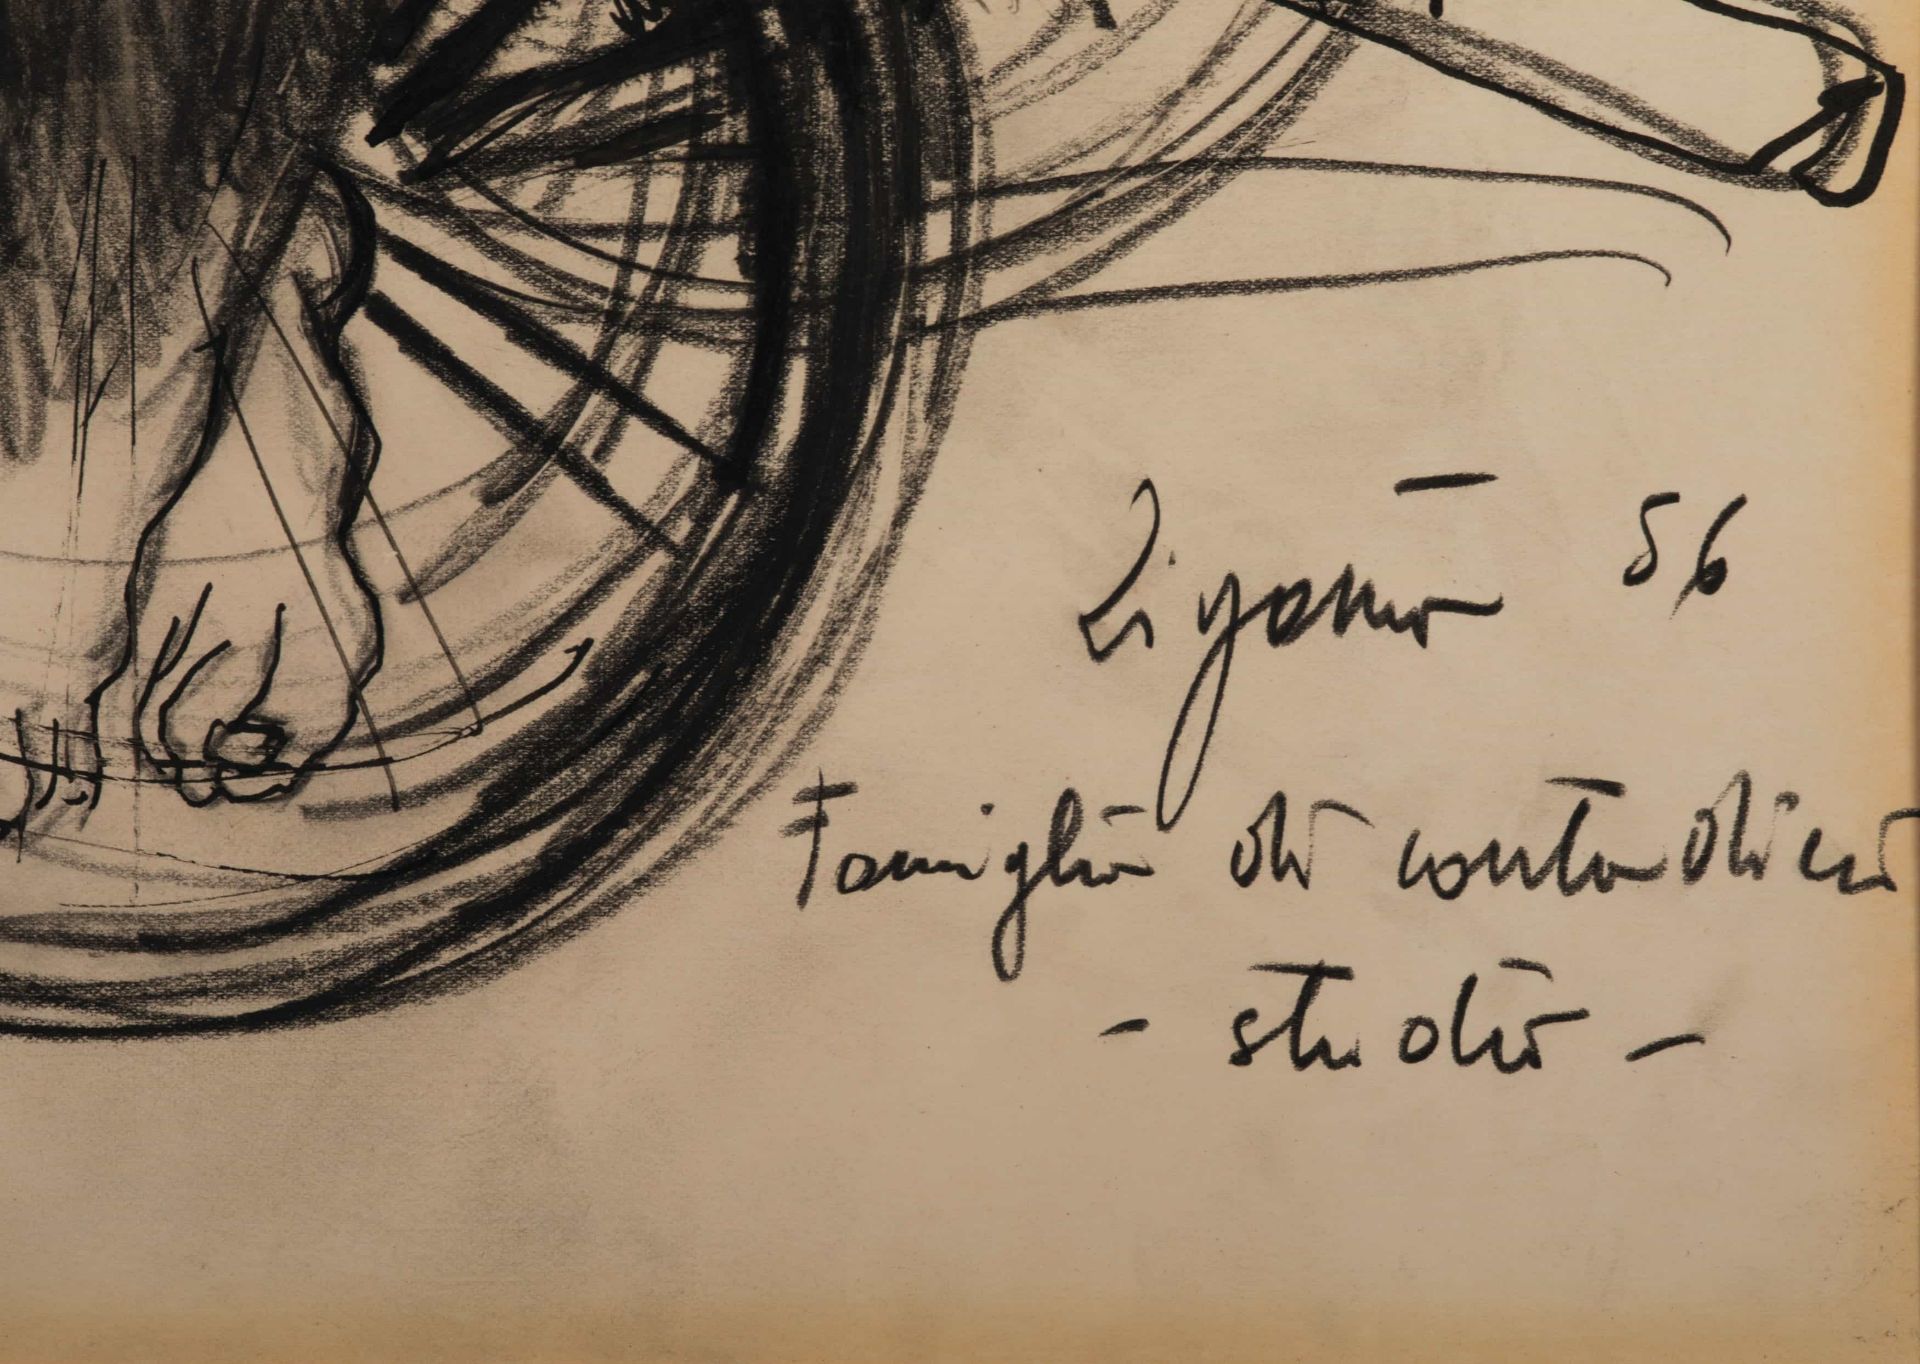 Zigaina 56
Famiglia di contadini
- studio -